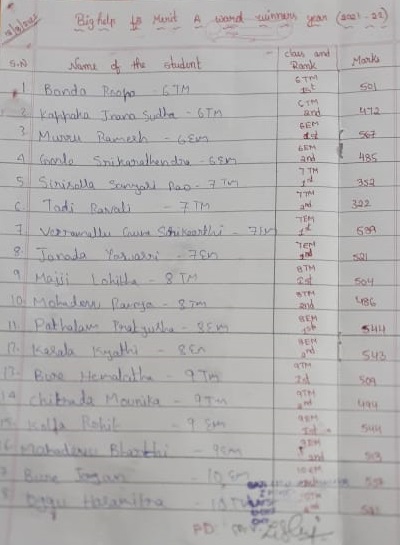 Big help to Merit Award winners year (2021-22)
S.N Name of the student class and Rank Marks
1 Banda Roopa - 6TM 6TM 1st 501
2 Kappaka Jnana Sudha - 6TM 6TM 2nd 472
3. Murru Ramesh - 6Em 6EM 1st 567
4 Srikarathendra - 6Em 6EM 2nd 485
5 Rao - 7Tm 7TM 1st 352
6 Tadi Ravali - 7TM 7TM 2nd 322
7 - 7Em 7EM 1st 539
8. Janada - 7Em 7EM 2nd 521
9 Majji Lohitha - 8TM 8TM 1st 504
10. Mahadevu Ramya - 8Tm 8TM 2nd 486
11. Pathalam Pratyusha - 8Em 8EM 1st 544
12. Karala Kyathi - 8Em 8EM 2nd 543
13. Bure Hemalatha - 9Tm 9TM 1st 509
14 Chikrada Mounika - 9Tm 9TM 2nd 494
15. Kalla Rohit - 9 Em 9EM 1st 544
16 Mahadevu Bharathi - 9Em 9EM 2nd
Bure Jagan - 10 Em 10EM
Hasamitra - 10TM